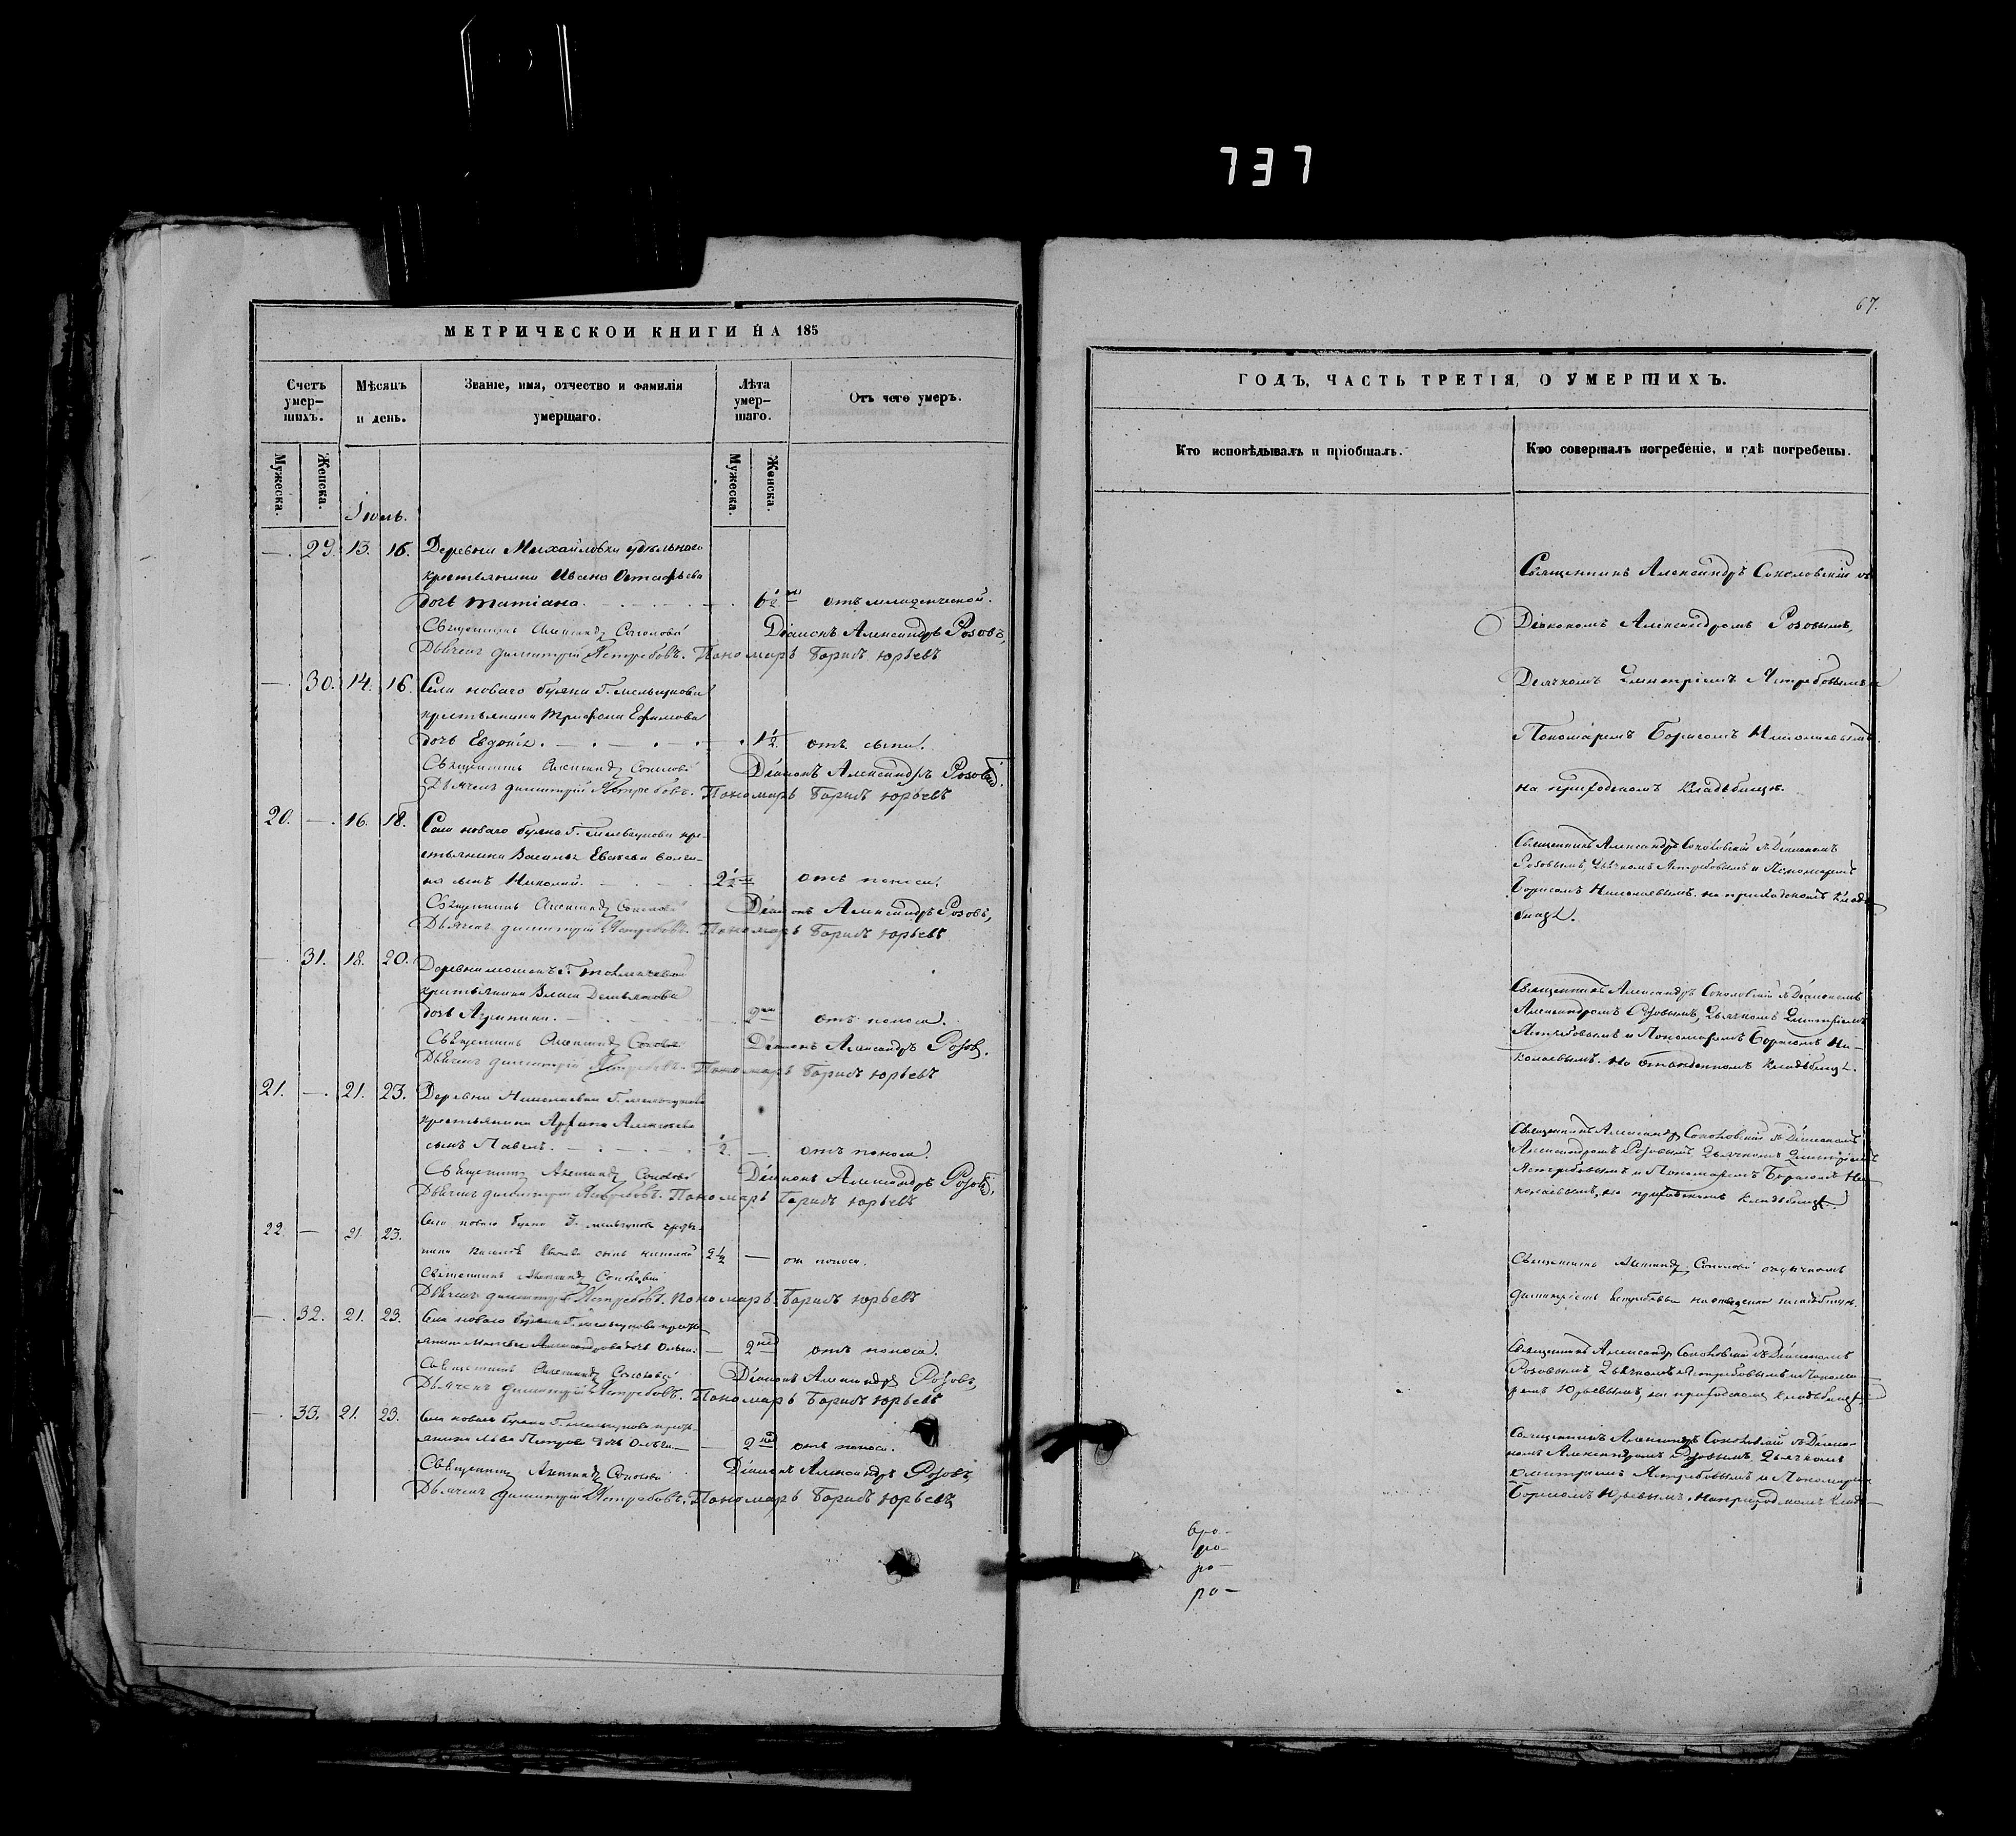 737
МЕТРИЧЕСКОЙ КНИГИ НА 185
Счетъ умер-шихъ.
Мѣсяцъ и день.
Званіе, имя, отчество и фамилія умершаго.
Лѣта умер-шаго.
Отъ чего умеръ.
Мужеска.
Женска.
Мужеска.
Женска.
Іюль.
—. 29. 13. 16. Деревни Михайловки удѣльнаго
крестьянина Ивана Остафьева
дочь Татіана. 6½ отъ младенческой.
Священникъ Александръ Соколовскій Діаконъ Александръ Розовъ,
Дьячекъ Димитрій Ястребовъ. Пономарь Борисъ Юрьевъ
—. 30. 14. 16. Села новаго Буяна Г. Мельгунова
крестьянина Трифона Ефимова
дочь Евдокія. 1½ отъ сыпи.
Священникъ Александръ Соколовскій Діаконъ Александръ Розовъ.
Дьячекъ Димитрій Ястребовъ. Пономарь Борисъ Юрьевъ
20. —. 16. 18. Села новаго Буяна Г. Мельгунова кре-
стьянина Василья
сынъ Николай. 2½ отъ поноса.
Священникъ Александръ Соколовскій Діаконъ Александръ Розовъ,
Дьячекъ Димитрій Ястребовъ. Пономарь Борисъ Юрьевъ
— 31. 18. 20. Деревни Г.
крестьянина Власа
дочь 2 отъ поноса.
Священникъ Александръ Соколовскій Діаконъ Александръ Розовъ.
Дьячекъ Димитрій Ястребовъ. Пономарь Борисъ Юрьевъ
21. —. 21. 23. Деревни Николаевки Г. Мельгунова
крестьянина Алексѣева
сынъ Павелъ. ½. —. отъ поноса.
Священникъ Александръ Соколовскій Діаконъ Александръ Розовъ,
Дьячекъ Димитрій Ястребовъ. Пономарь Борисъ Юрьевъ
22. — 21. 23. Села новаго Буяна Г. Мельгунова
сынъ Николай 2½ — от поноса.
Священникъ Александръ Соколовскій
Дьячекъ Димитрій Ястребовъ. Пономарь Борисъ Юрьевъ
—. 32. 21. 23. Села новаго Буяна Г. Мельгунова
Александрова дочь Ольга. — 2 отъ поноса.
Священникъ Александръ Соколовскій Діаконъ Александръ Розовъ,
Дьячекъ Димитрій Ястребовъ. Пономарь Борисъ Юрьевъ
—. 33. 21. 23. Села новаго Буяна Г. Мельгунова
Льва Петрова дочь Ольга — 2 отъ поноса.
Священникъ Александръ Соколовскій Діаконъ Александръ Розовъ,
Дьячекъ Димитрій Ястребовъ. Пономарь Борисъ Юрьевъ
67.
ГОДЪ, ЧАСТЬ ТРЕТІЯ, О УМЕРШИХЪ.
Кто исповѣдывалъ и пріобщалъ.
Кто совершалъ погребеніе, и гдѣ погребены.
Священникъ Александръ Соколовскій съ
Діакономъ Александромъ Розовымъ,
Дьячкомъ Димитріемъ Ястребовымъ и
Пономаремъ Борисомъ Николаевымъ
на приходскомъ кладбищѣ.
Священникъ Александръ Соколовскій съ Діакономъ
Розовымъ, Дьячкомъ Ястребовымъ и Пономаремъ
Борисомъ Николаевымъ на приходскомъ клад-
бищѣ.
Священникъ Александръ Соколовскій съ Діакономъ
Александромъ Розовымъ, Дьячкомъ Димитріемъ
Ястребовымъ и Пономаремъ Борисомъ Ни-
колаевымъ на кладбищѣ.
Священникъ Александръ Соколовскій съ Діакономъ
Александромъ Розовымъ, Дьячкомъ Димитріемъ
Ястребовымъ и Пономаремъ Борисомъ Ни-
колаевымъ, на приходскомъ кладбищѣ.
Священникъ Александръ Соколовскій съ дьячкомъ
Димитріемъ Ястребовымъ на кладбищѣ.
Священникъ Александръ Соколовскій съ Діакономъ
Розовымъ, Дьячкомъ Ястребовымъ и Понома-
ремъ Юрьевымъ, на приходскомъ кладбищѣ
Священникъ Александръ Соколовскій съ Діако-
номъ Александромъ Розовымъ, Дьячкомъ
Димитріемъ Ястребовымъ и Пономаремъ
Борисомъ Юрьевымъ, на приходскомъ клад-
ро-
ро-
ро-